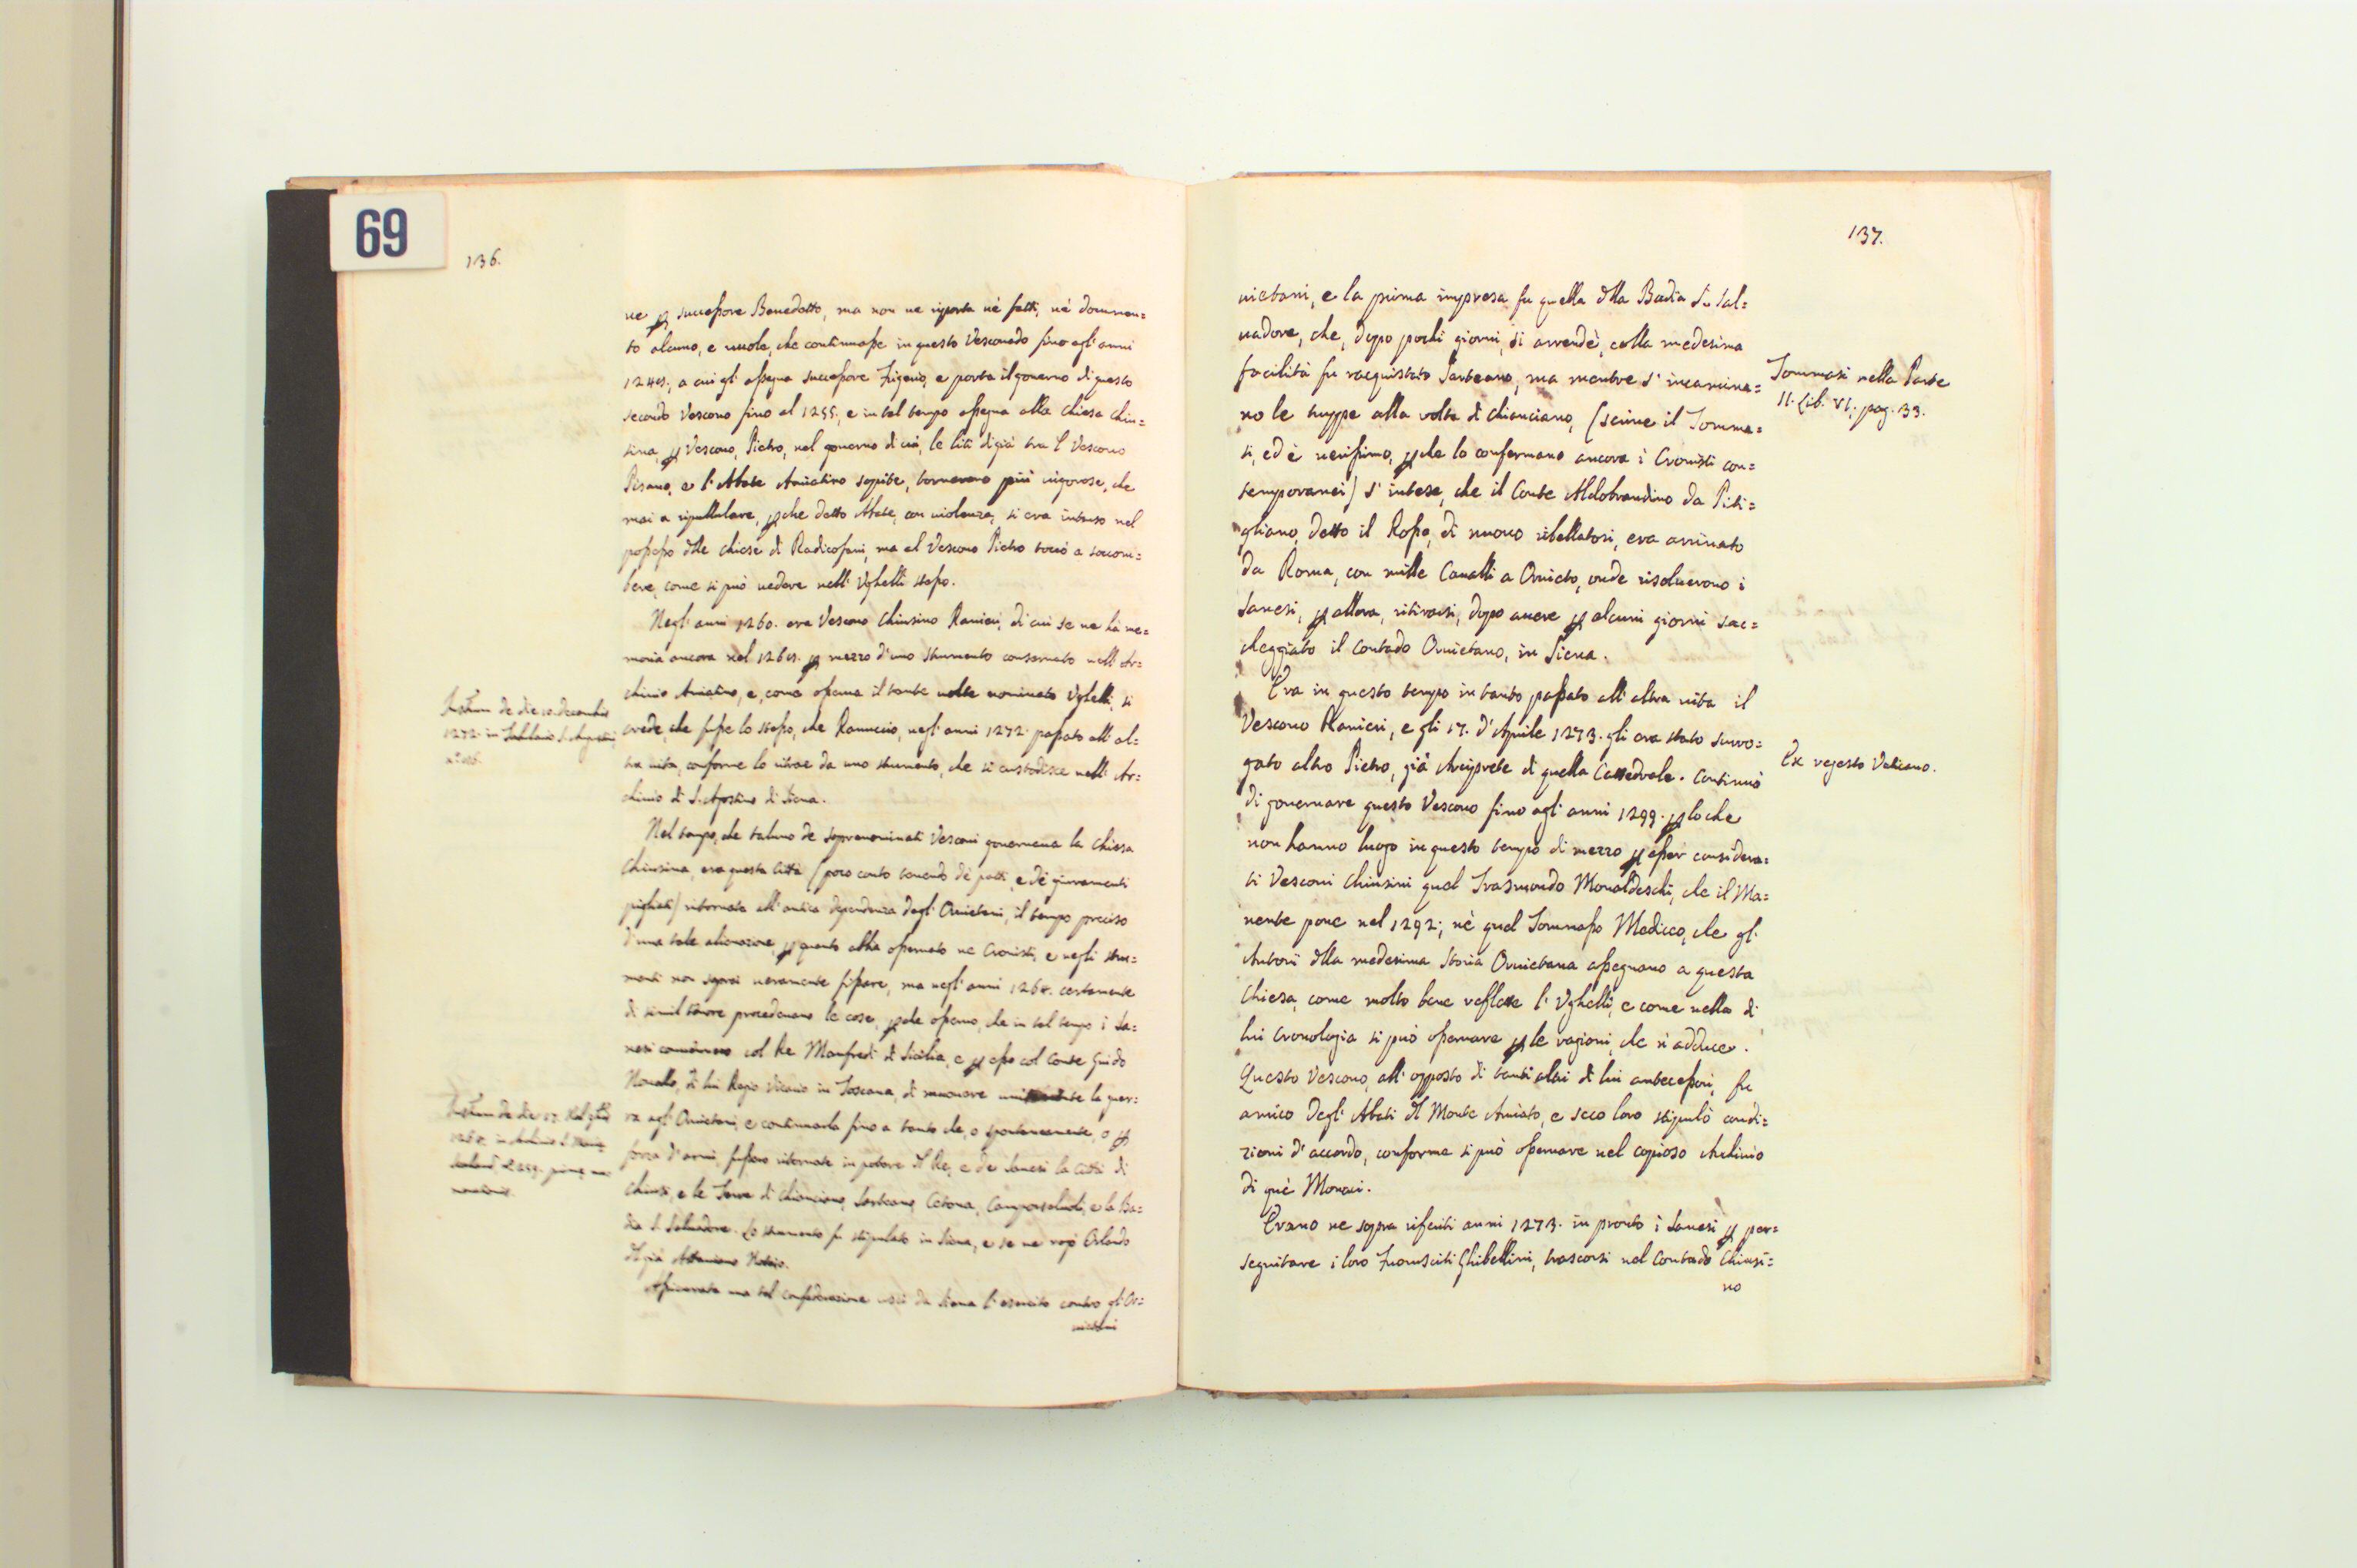 69
136.
ne per successore Benedetto, ma non ne riporta nè fatti, nè documen=
to alcuno, e vuole, che continuasse in questo Vescovado fino agl' anni
a cui gl' assegna successore e porta il governo di questo
secondo Vescovo fino al 1255; e in tal tempo assegna alla Chiesa Chiu=
sina, per Vescovo, Pietro, nel governo di cui, le liti di già tra l' Vescovo
Pisano, e l' Abate Amiatino sopite, tornarono più vigorose, che
mai a ripullulare, perche detto Abate, con violenza, si era intruso nel
possesso delle chiese di Radicofani, ma al Vescovo Pietro toccò a soccom=
bere, come si può vedere nell' Ughelli stesso.
Negl' anni 1260. era Vescovo Chiusino Ranieri, di cui se ne hà me=
moria ancora nel per mezzo d' uno strumento conservato nell' Ar=
chivio Amiatino, e, come osserva il tante volte nominato Ughelli, si
crede, che fosse lo stesso, che Ranuccio, negl' anni 1272. passato all' al=
tra vita, conforme lo ritrae da uno strumento, che si custodisce nell' Ar=
chivio di S. Agostino di Siena.
de die 10. decembris
1272. in S. Augustini
Nel tempo, che taluno de sopranominati Vescovi governava la Chiesa
Chiusina, era questa Città (poco conto tenendo de' patti, e de' giuramenti
pigliati) ritornata all' antica dependenza degl' Orvietani, il tempo preciso
d' una tale alienazione, per quanto abbia osservato ne Cronisti, e negli stru=
menti non saprei veramente fissare, ma negl' anni certamente
di simil tenore procedevano le cose, perche osservo, che in tal tempo i Sa=
nesi col Re Manfredi di Sicilia, e per esso col Conte Guido
Novello, di lui Regio Vicario in Toscana, di muovere la guer=
ra agl' Orvietani, e continuarla fino a tanto che, o spontaneamente, o per
forza d' armi, fossero ritornate in potere del Re, e de' Sanesi la Città di
Chiusi, e le Terre di Chianciano, Sarteano, Cetona, e la Ba=
dia S. Salvadore. Lo strumento fu stipulato in Siena, e se ne rogò Orlando
del già Notaio.
de die 17.
in
una tal confederazione uscì da Siena l' esercito contro gl' Or=
vietani
137.
vietani, e la prima impresa fu quella della Badia S. Sal=
vadore, che, dopo pochi giorni, si arrendè, colla medesima
facilità fu racquistato Sarteano, ma mentre s' incamina=
no le truppe alla volta di Chianciano, (scrive il Tomma=
si, ed è verissimo, perche lo confermano ancora i Cronisti con=
temporanei) s' intese, che il Conte Aldobrandino da Piti=
gliano, detto il Rosso, di nuovo ribellatosi, era arrivato
da Roma, con mille Cavalli a Orvieto, onde risolverono i
Sanesi, per allora, ritirarsi, dopo avere per alcuni giorni sac=
cheggiato il Contado Orvietano, in Siena.
Tommasi nella Parte
II. Lib. VI. pag. 33.
Era in questo tempo in tanto passato all' altra vita il
Vescovo Ranieri, e gli 17. d' Aprile 1273. gli era stato surro=
gato altro Pietro, già Arciprete di quella Cattedrale. Continuò
di governare questo Vescovo fino agl' anni 1299. per lo che
non hanno luogo in questo tempo di mezzo per esser considera=
ti Vescovi Chiusini quel Trasmondo Monaldeschi, che il Ma=
nente pone nel 1292; nè quel Tommaso Medico, che gl'
Autori della medesima Storia Orvietana assegnano a questa
Chiesa, come molto bene reflette l' Ughelli, e come nella di
lui Cronologia si può osservare per le ragioni, che vi adduce.
Questo Vescovo, all' opposto di tanti altri di lui antecessori, fu
amico degl' Abati del Monte Amiato, e seco loro stipulò condi=
zioni d' accordo, conforme si può osservare nel copioso Archivio
di que' Monaci.
Ex regesto Vaticano.
Erano ne sopra riferiti anni 1273. in pronto i Sanesi per per=
seguitare i loro Fuorusciti Ghibellini, trascorsi nel Contado Chiusi=
no